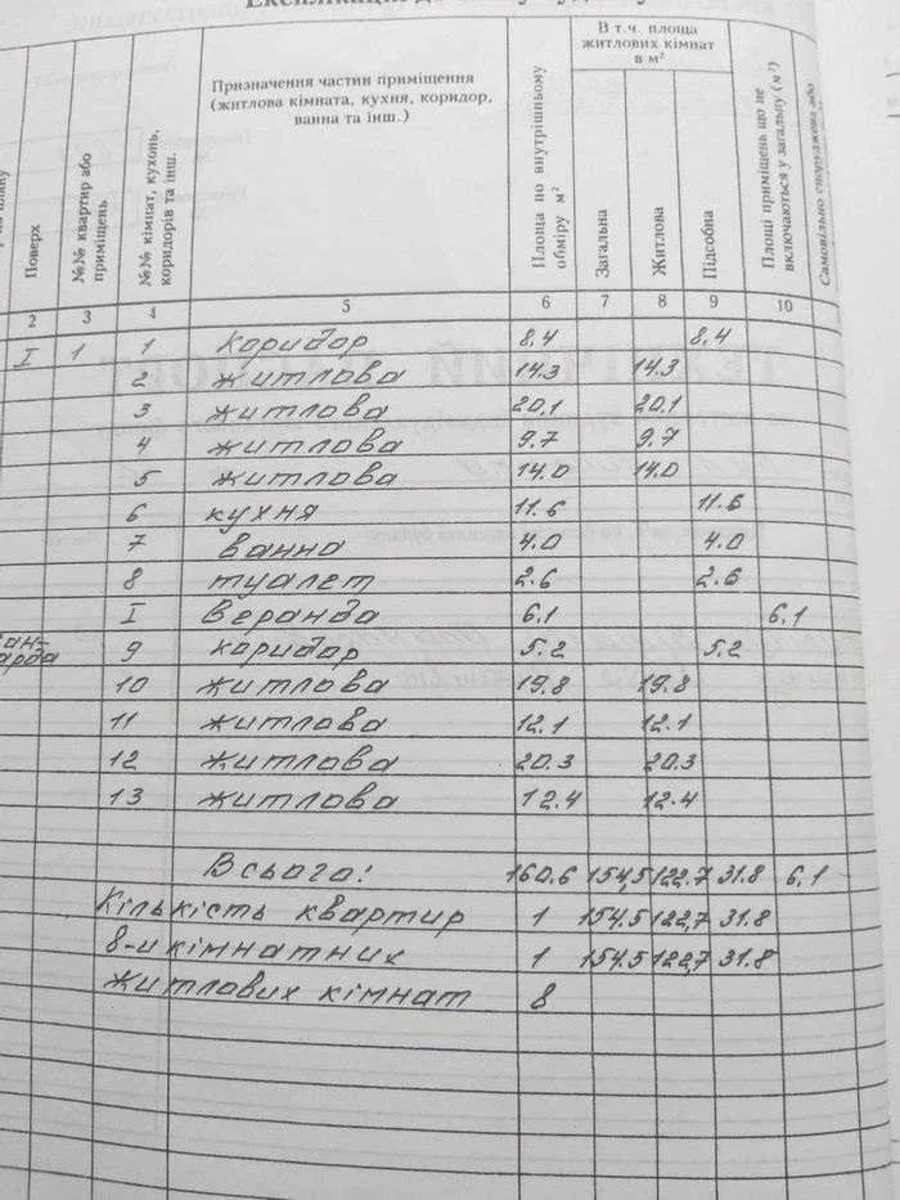 В т.ч. площа
житлових кімнат
в м²
Призначення частин приміщення
(житлова кімната, кухня, коридор,
ванна та інш.)
Поверх
№№ квартир або
приміщень
№№ кімнат, кухонь,
коридорів та інш.
Площа по внутрішньому
обміру м²
Загальна
Житлова
Підсобна
Площі приміщень що не
включаються у загальну (м²)
Самовільно споруджена або
2 3 4 5 6 7 8 9 10
I 1 1 коридор 8,4 8,4
2 житлова 14.3 14.3
3 житлова 20,1 20,1
4 житлова 9,7 9,7
5 житлова 14.0 14.0
6 кухня 11.6 11.6
7 ванна 4.0 4.0
8 туалет 2.6 2.6
I Веранда 6,1 6,1
9 коридор 5.2 5.2
10 житлова 19.8 19.8
11 житлова 12.1 12.1
12 житлова 20.3 20.3
13 житлова 12.4 12.4
Всього: 160.6 154,5 122.7 31.8 6,1
Кількість квартир 1 154.5 122,7 31.8
8-и кімнатних 1 154.5 122,7 31.8
Житлових кімнат 8